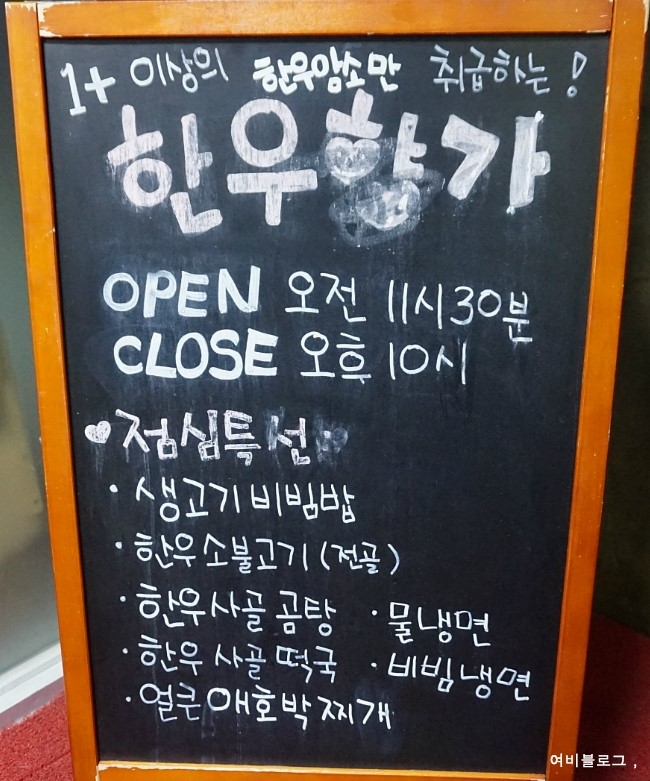 1+ 이상의 한우암소만 취급하는!
한우향가
OPEN 오전 11시30분
CLOSE 오후 10시
♥점심특선♥
· 생고기비빔밥
· 한우소불고기(전골)
· 한우사골곰탕 · 물냉면
· 한우사골떡국 · 비빔냉면
· 얼큰애호박찌개
여비블로그 ,